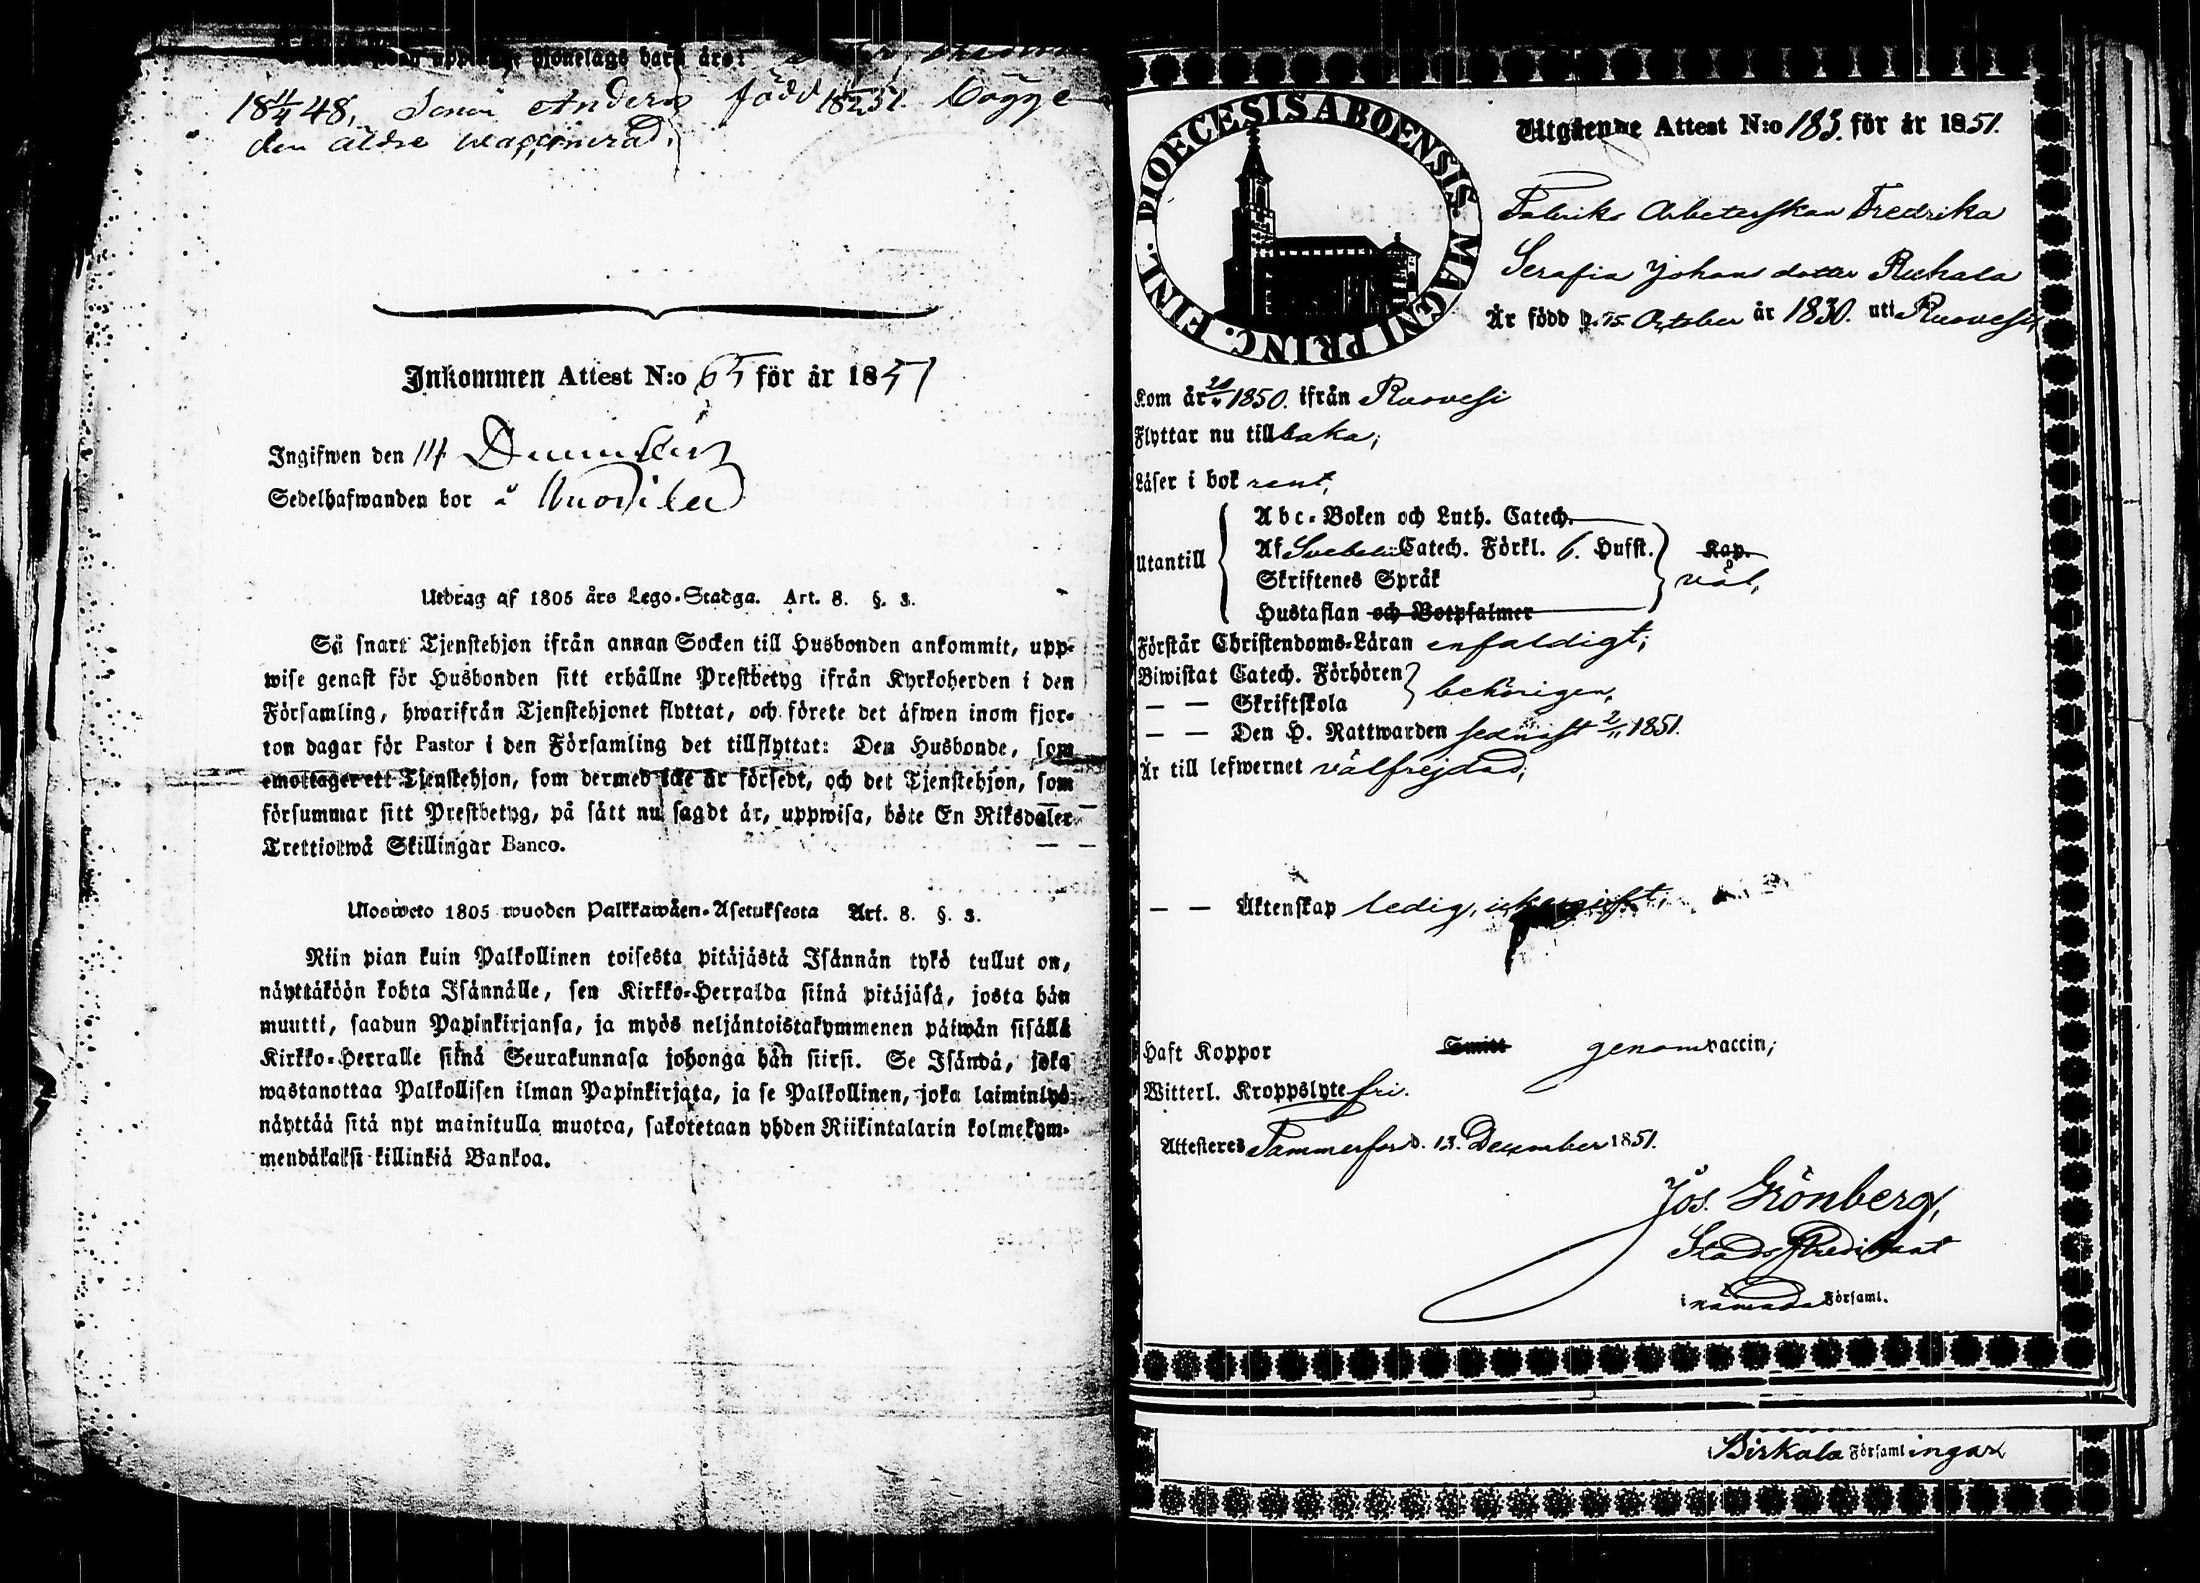 18 11/4 48, Sonen Anders född 18 51. Bägge
den äldre waccinerad;
Inkommen Attest N:o 65 för år 1851
Ingifwen den 14 December
Sedelhafwanden bor å
Utdrag af 1805 års Lego-Stadga. Art. 8. §. 3.
Så snart Tjenstehjon ifrån annan Socken till Husbonden ankommit, upp-
wise genast för Husbonden sitt erhållne Prestbetyg ifrån Kyrkoherden i den
Församling, hwarifrån Tjenstehjonet flyttat, och förete det äfwen inom fjor-
ton dagar för Pastor i den Församling det tillflyttat: Den Husbonde, som
emottager ett Tjenstehjon, som dermed icke är försedt, och det Tjenstehjon, som
försummar sitt Prestbetyg, på sätt nu sagdt är, uppwisa, böte En Riksdaler
Trettiotwå Skillingar Banco.
Ulosweto 1805 wuoden Palkkawäen-Asetuksesta Art. 8. §. 3.
Niin pian kuin Palkollinen toisesta pitäjästä Isännän tykö tullut on,
näyttäköön kohta Isännälle, sen Kirkko-Herralda siinä pitäjäsä, josta hän
muutti, saadun Papinkirjansa, ja myös neljäntoistakymmenen päiwän sisällä
Kirkko-Herralle siinä Seurakunnasa johonga hän siirsi. Se Isändä, joka
wastanottaa Palkollisen ilman Papinkirjata, ja se Palkollinen, joka laiminlyö
näyttää sitä nyt mainitulla muotoa, sakotetaan yhden Riikintalarin kolmekym-
mendäkaksi killinkiä Bankoa.
DIOECESIS ABOENSIS. MAGNI PRINC. FINL.
Utgående Attest N:o 183. för år 1851.
Fabriks Arbeterskan Fredrika
Serafia Johans dotter Ruhala
Är född d. 15 October år 1830. uti Ruovesi,
Kom år 1850. ifrån Ruovesi
Flyttar nu tillbaka;
Läser i bok rent,
Utantill
Abc-Boken och Luth. Catech.
Af Svebelii Catech. Förkl. 6. Hufst.
Kap.
Skriftenes Språk
väl,
Hustaflan och Botpsalmer
Förstår Christendoms-Läran enfaldigt;
Biwistat Catech. Förhören
behörigen,
— — Skriftskola
— — Den H. Nattwarden sednast 2/11 1851.
Är till lefwernet välfrejdad;
— — Äktenskap ledig,
Haft Koppor Smitt genom vaccin;
Witterl. Kroppslyte fri.
Attesteres Tammerfors d. 13. December 1851.
Jos. Grönberg,
Stads Predikant
i nämnda Församl.
i Birkala Församl ingar